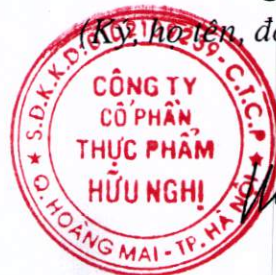 (Ký, họ tên, đó
S.Đ.K.K.D: 0102109239-C.T.C.P
CÔNG TY
CỔ PHẦN
THỰC PHẨM
HỮU NGHỊ
Q. HOÀNG MAI - TP. HÀ NỘI